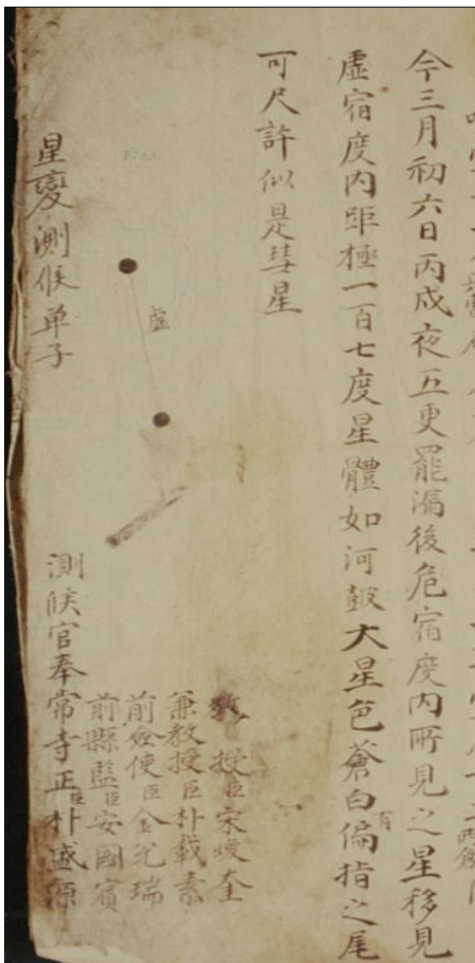 今三月初六日丙戌夜五更罷漏後危宿度内所見之星移見
虛宿度内距極一百七度星體如河鼓大星色蒼白有偏指之尾
可尺許似是彗星
虛
教授臣宋
兼教授臣朴載素
前僉使臣金兌瑞
前縣監臣安國賓
測候官奉常寺正臣朴盛源
星變測候单子